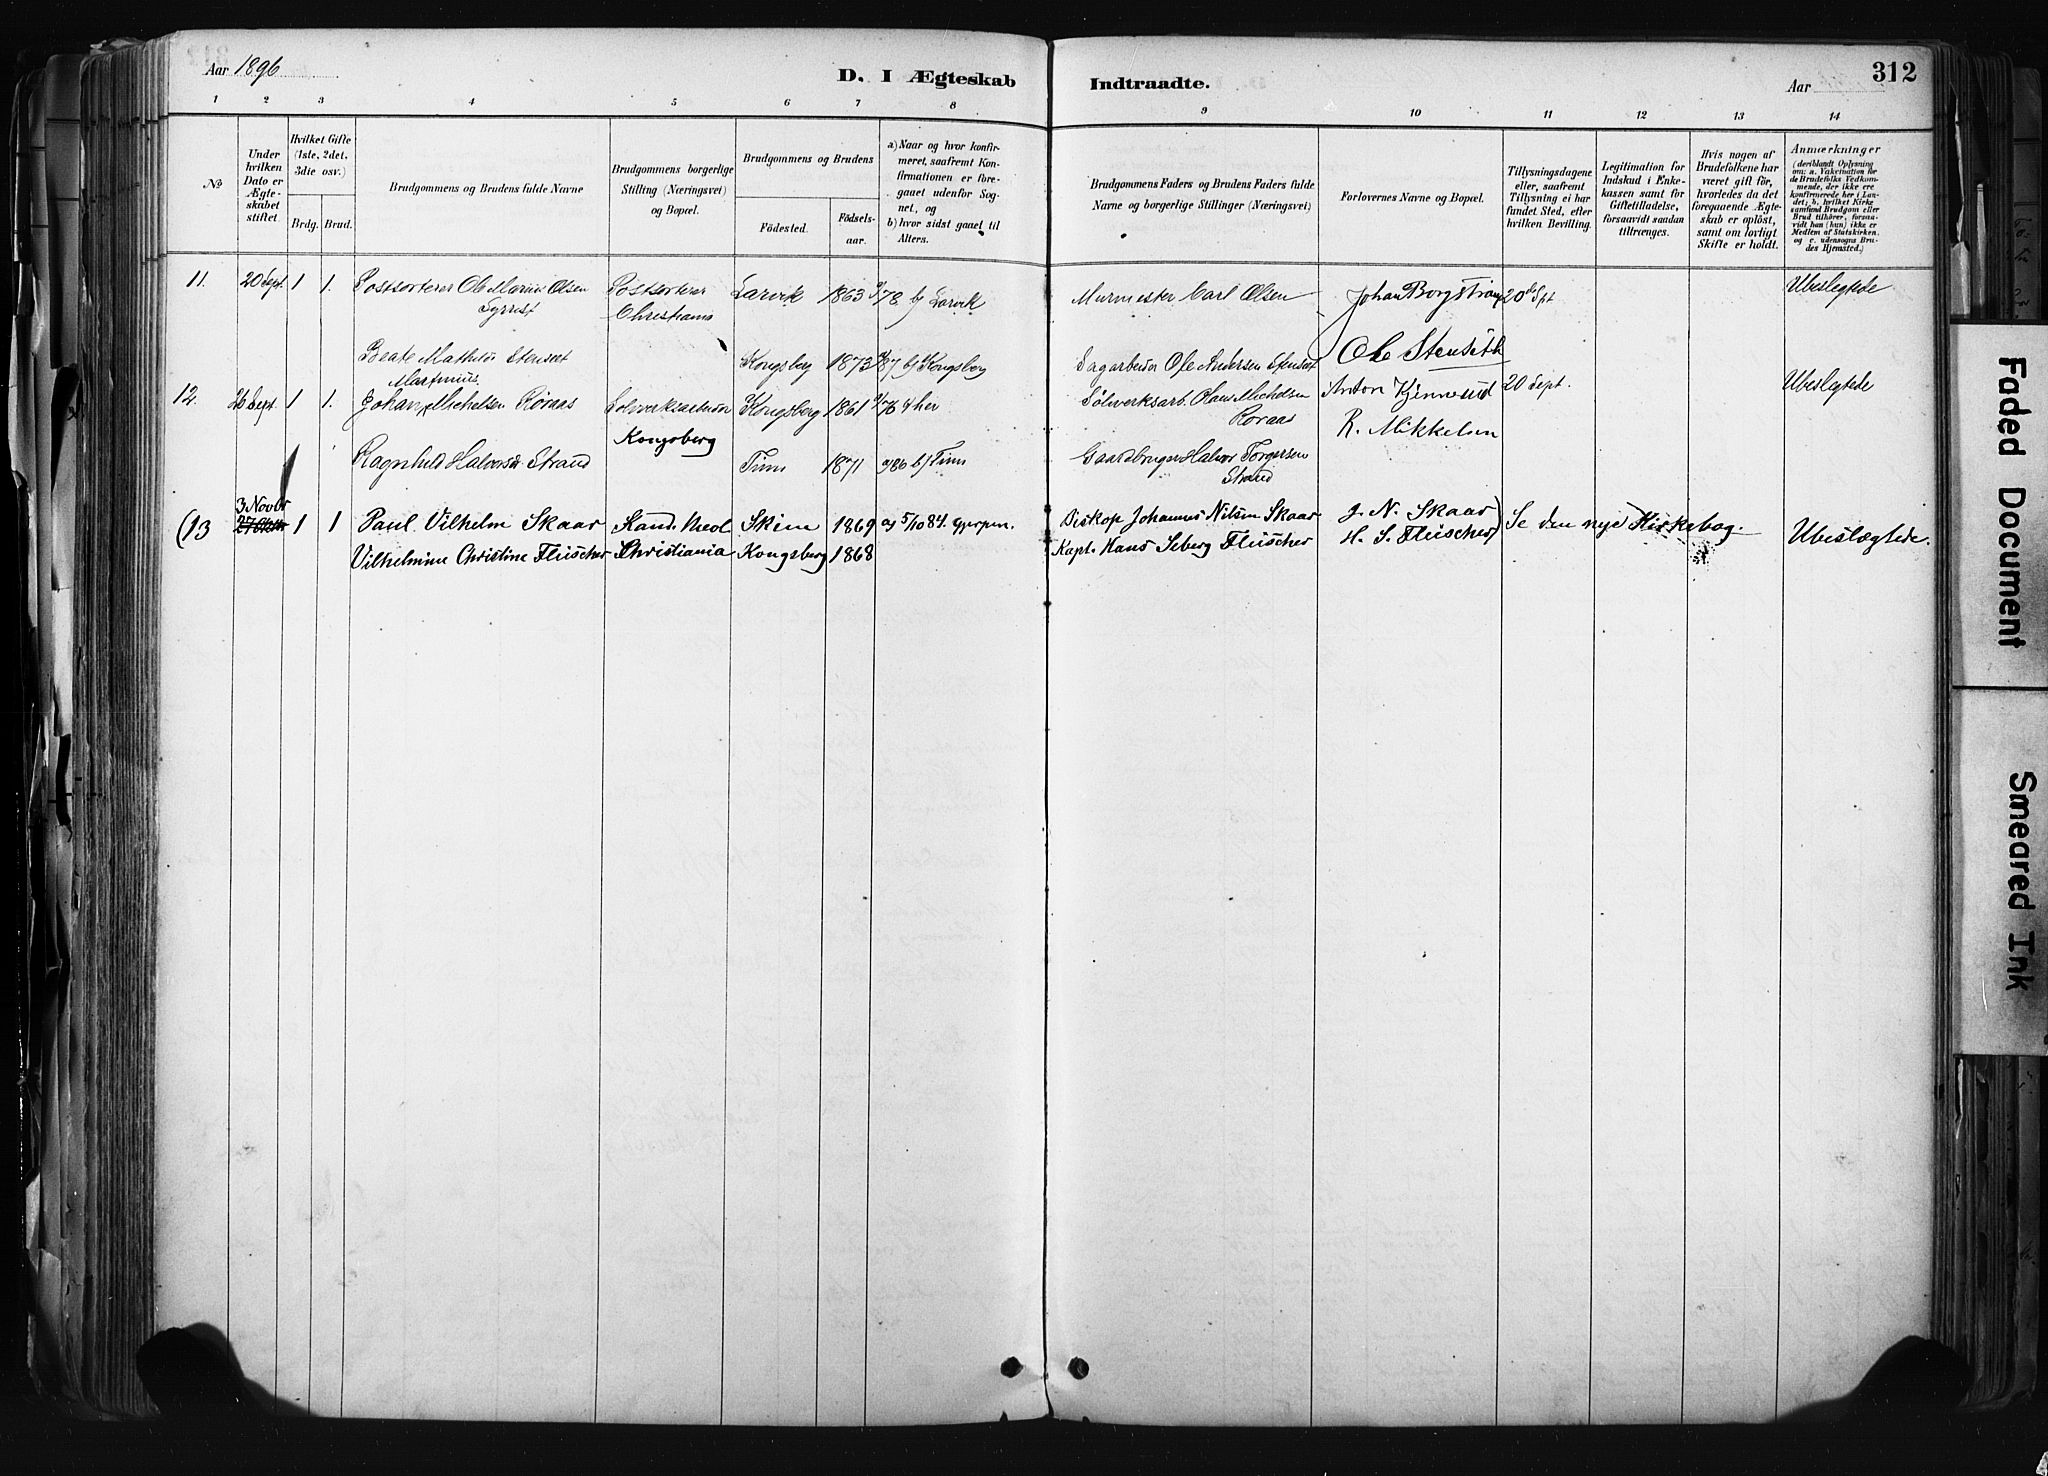 Aar 1896
D. I Ægteskab
Indtraadte.
Aar
312
1 2 3 4 5 6 7 8 9 10 11 12 13 14
No
Under hvilken Dato er Ægteskabet stiftet.
Hvilket Gifte (1ste, 2det, 3die osv.)
Brdg. Brud.
Brudgommens og Brudens fulde Navne
Brudgommens borgerlige Stilling (Næringsvei) og Bopæl.
Brudgommens og Brudens
Födested.
Födselsaar.
a) Naar og hvor konfirmeret, saafremt Konfirmationen er foregaaet udenfor Sognet, og
b) hvor sidst gaaet til Alters.
Brudgommens Faders og Brudens Faders fulde Navne og borgerlige Stillinger (Næringsvei)
Forlovernes Navne og Bopæl.
Tillysningsdagene eller, saafremt Tillysning ei har fundet Sted, efter hvilken Bevilling.
Legitimation for Indskud i Enkekassen samt for Giftetilladelse, forsaavidt saadan tiltrænges.
Hvis nogen af Brudefolkene har været gift før, hvorledes da det foregaaende Ægteskab er oplöst, samt om lovligt Skifte er holdt.
Anmærkninger
(deriblandt Oplysning om: a. Vakcination for de Brudefolks Vedkommende, der ikke ere konfirmerede her i Landet; b. hvilket Kirkesamfund Brudgom eller Brud tilhører, forsaavidt han (hun) ikke er Medlem af Statskirken. og c. udensogns Brudes Hjemsted.)
11. 20 Sept. 1 1. Postsorterer Ole Marius Olsen Postsorterer Larvik 1863 78 b) Larvik Murmester Carl Olsen Johan Borgstrøm 20de Spt Ubeslegtede
Christiania
Beate Mathilde Stenset Kongsberg 1873 87 b) Kongsberg Sagarbeider Ole Andersen Stenset Ole Stenseth
12. 26 Sept. 1 1. Johan Michelsen Røraas Sølverksarbeider Kongsberg 1861 76 her Sølverksarb. Claus Michelsen Anton Kjennerud 20 Sept. Ubeslegtede
Kongsberg Roraas R. Mikkelsen
Ragnhild Halvorsd. Strand Tinn 1871 a) 86 b) Tinn Gaardbruger Halvor Torgersen
Strand
3 Novbr
(13 27 Oktbr 1 1 Paul Vilhelm Skaar Kand. theol Skien 1869 a) 5/10 84. Gjerpen. Biskop Johannes Nilsen Skaar J. N. Skaar Se den nye Kirkebog. Ubeslægtede.
Vilhelmine Christine Fleischer Christiania Kongsberg 1868 Kapt. Hans Seberg Fleischer H. S. Fleischer)
Faded Document
Smeared Ink